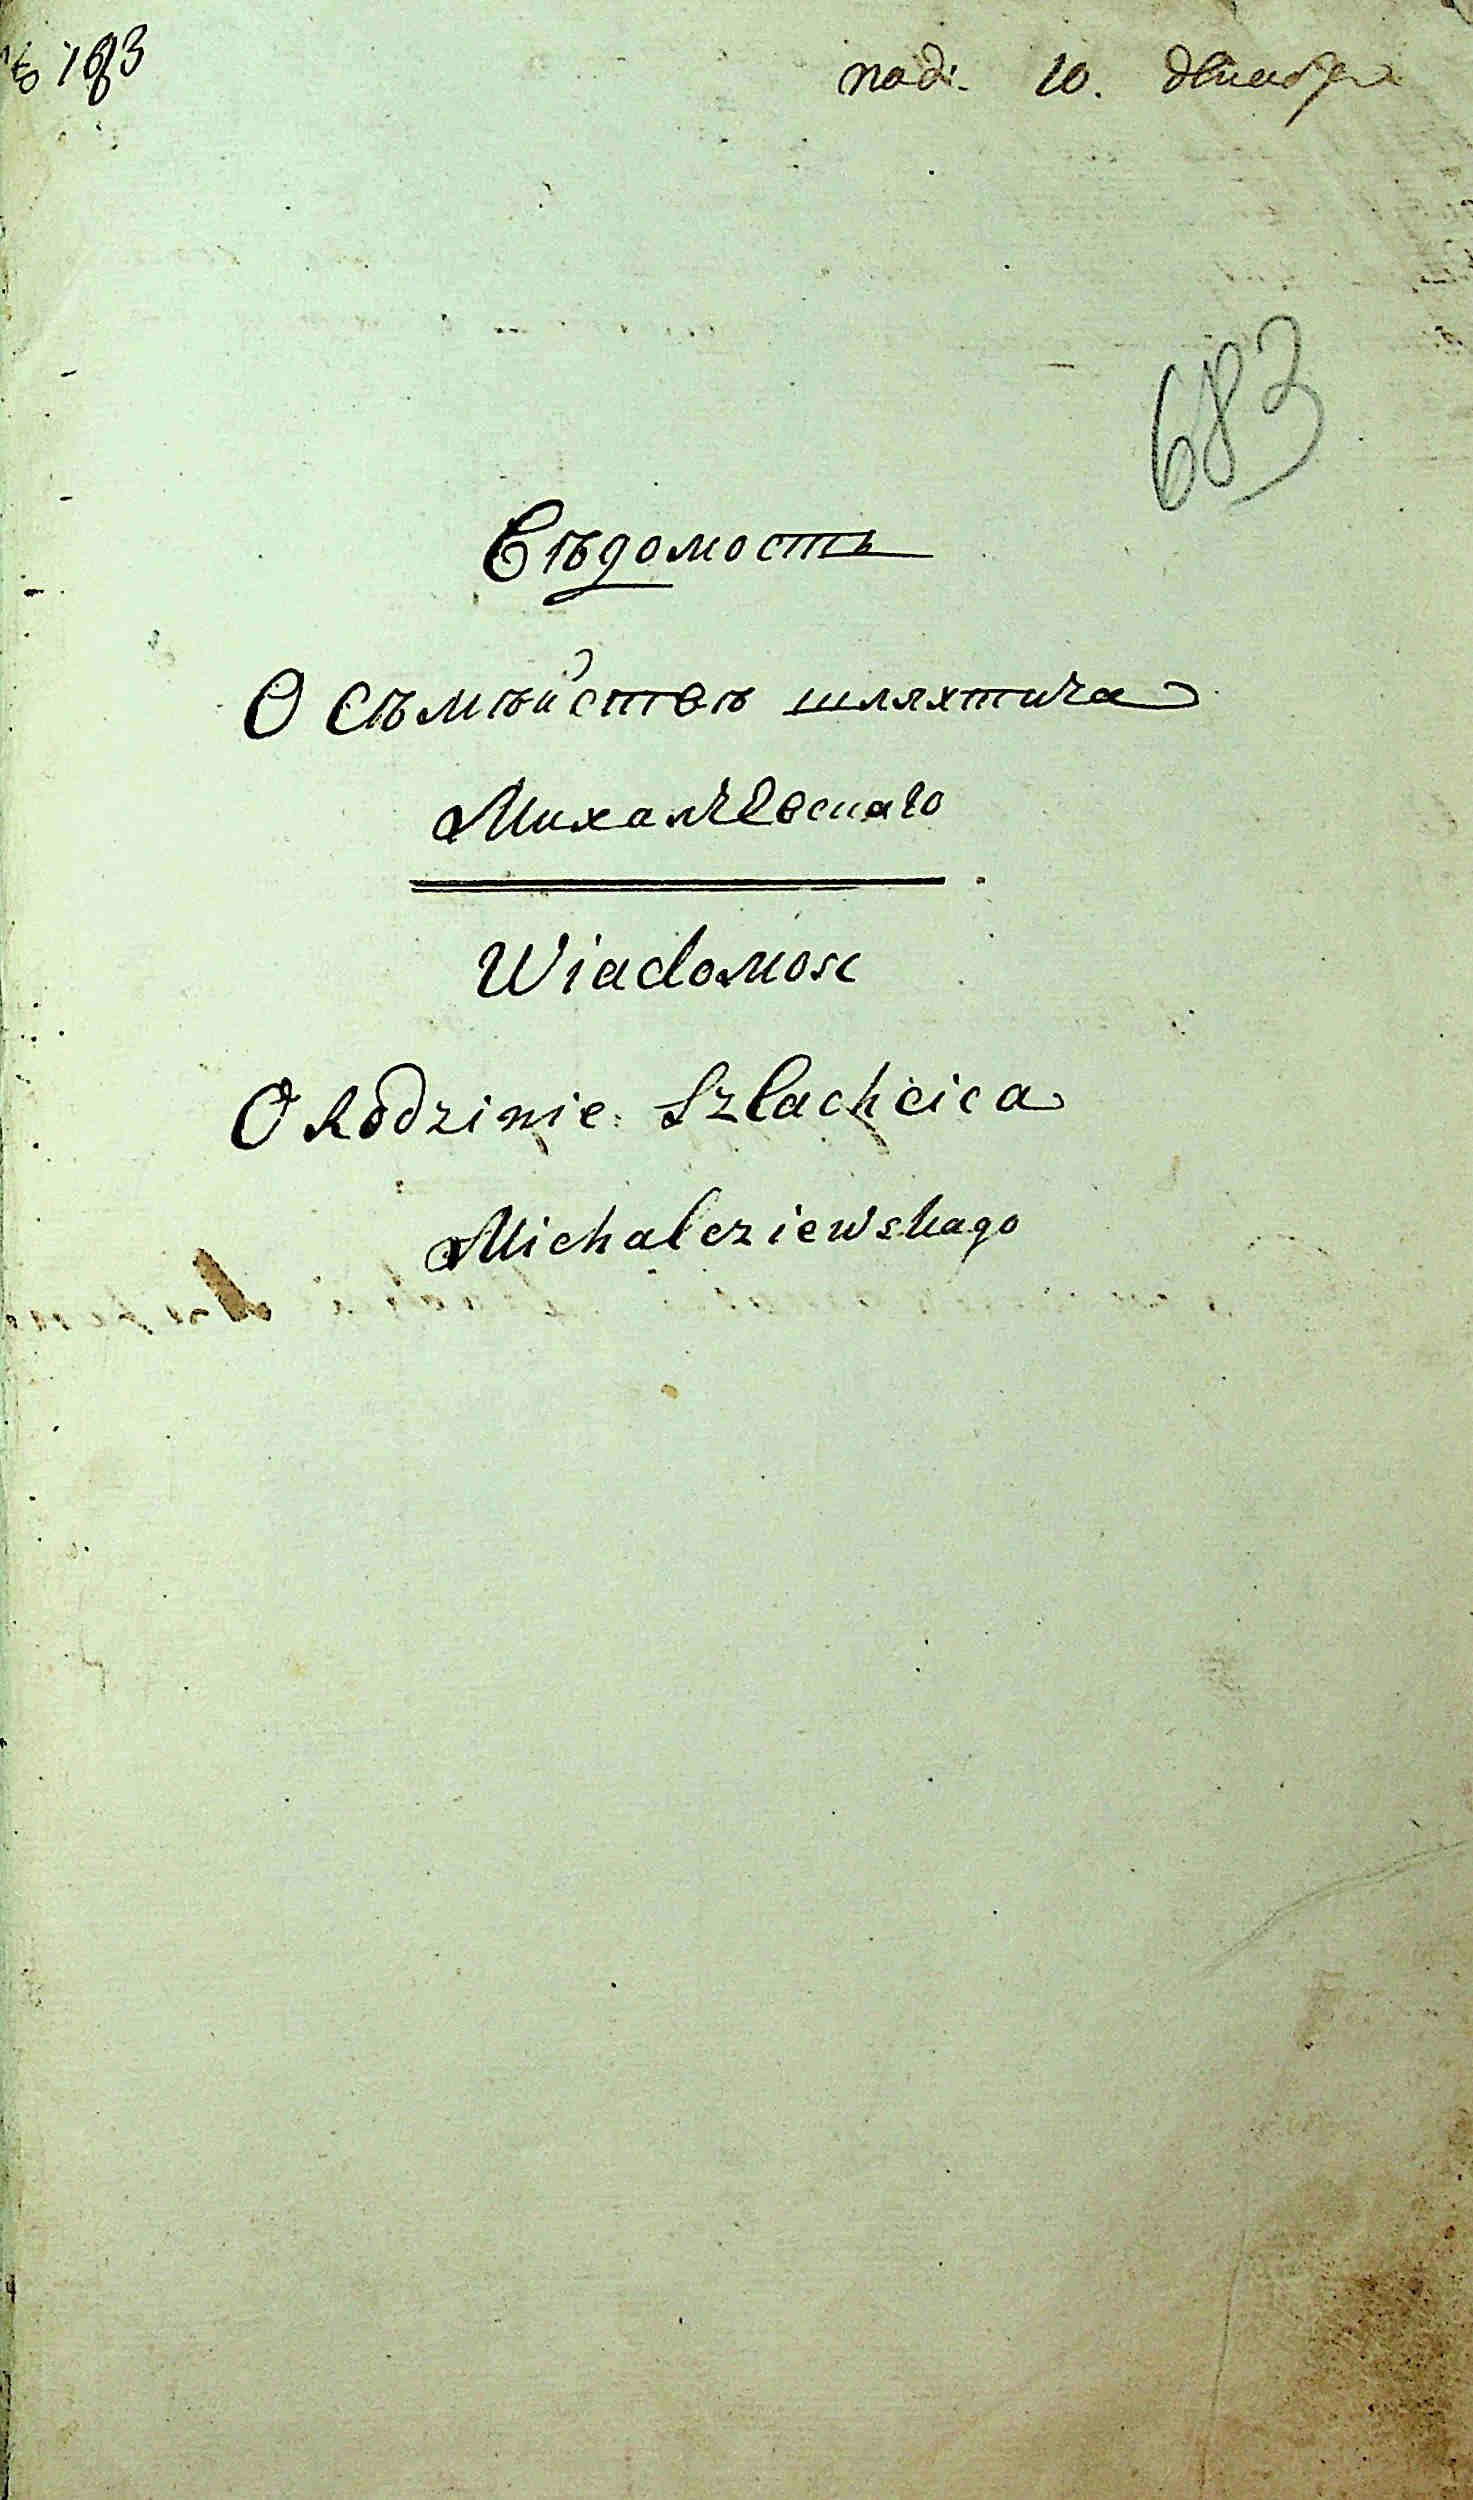 № 193
под. 10. декабря
683
Вѣдомость
О Сѣмѣйствѣ шляхтича
Михалчевскаго
Wiadomosc
O Rodzinie Szlachcica
Michalcziewskago